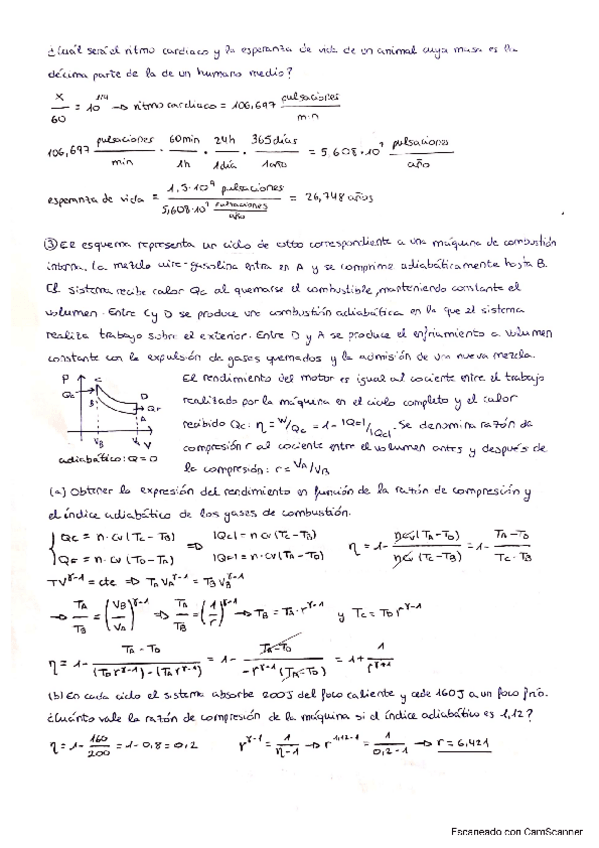 ¿Cuál será el ritmo cardiaco y la esperanza de vida de un animal cuya masa es la
décima parte de la de un humano medio?
x/60 = 10^1/4 → ritmo cardiaco = 106,697 pulsaciones/min
106,697 pulsaciones/min · 60min/1h · 24h/1día · 365días/1año = 5.608·10^7 pulsaciones/año
esperanza de vida = 1,5·10^9 pulsaciones / 5,608·10^7 pulsaciones/año = 26,748 años
③ El esquema representa un ciclo de otto correspondiente a una máquina de combustión
interna. La mezcla aire-gasolina entra en A y se comprime adiabáticamente hasta B.
El sistema recibe calor Qc al quemarse el combustible, manteniendo constante el
volumen. Entre C y D se produce una combustión adiabática en la que el sistema
realiza trabajo sobre el exterior. Entre D y A se produce el enfriamiento a volumen
constante con la expulsión de gases quemados y la admisión de una nueva mezcla.
P
C
Qc
B
D
QF
A
VB
VA
V
adiabático: Q=0
El rendimiento del motor es igual al cociente entre el trabajo
realizado por la máquina en el ciclo completo y el calor
recibido Qc: η = W/Qc = 1- |QF|/|Qc|. Se denomina razón de
compresión r al cociente entre el volumen antes y después de
la compresión: r = VA/VB
(a) Obtener la expresión del rendimiento en función de la razón de compresión y
el índice adiabático de los gases de combustión.
{ Qc = n·cv (Tc - TB) ⇒ |Qc| = n cv (Tc - TB) η = 1- n cv (TA - TD) / n cv (Tc - TB) = 1- TA - TD / Tc - TB
QF = n·cv (TD - TA) |QF| = n·cv (TA - TD)
TV^γ-1 = cte ⇒ TA VA^γ-1 = TB VB^γ-1
→ TA/TB = (VB/VA)^γ-1 ⇒ TA/TB = (1/r)^γ-1 → TB = TA·r^γ-1 y Tc = TD r^γ-1
η = 1- TA - TD / (TD r^γ-1) - (TA r^γ-1) = 1- TA - TD / -r^γ-1 (TA - TD) = 1 + 1/r^γ+1
(b) En cada ciclo el sistema absorbe 200J del foco caliente y cede 160J a un foco frío.
¿Cuánto vale la razón de compresión de la máquina si el índice adiabático es 1,12?
η = 1- 160/200 = 1- 0,8 = 0,2 r^γ-1 = 1/η-1 → r^1,12-1 = 1/0,2-1 → r = 6,421
Escaneado con CamScanner